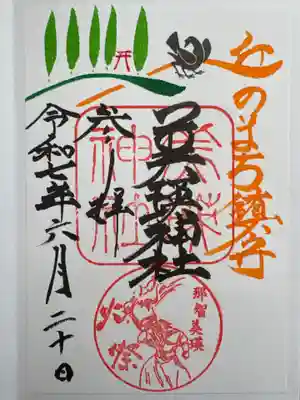 丘のまち鎮守
美瑛神社
令和七年六月二十日
美瑛神社
那智美瑛
火祭